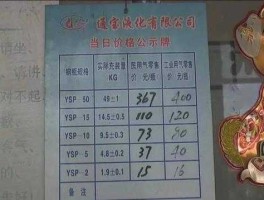 通宝液化有限公司
当日价格公示牌
钢瓶规格 实际充装量KG 民用气零售价元/瓶 工业用气零售价元/瓶
YSP-50 49±1 367 400
YSP-15 14.5±0.5 110 120
YSP-10 9.5±0.3 73 80
YSP-5 4.8±0.2 37 40
YSP-2 1.9±0.1 15 16
备注